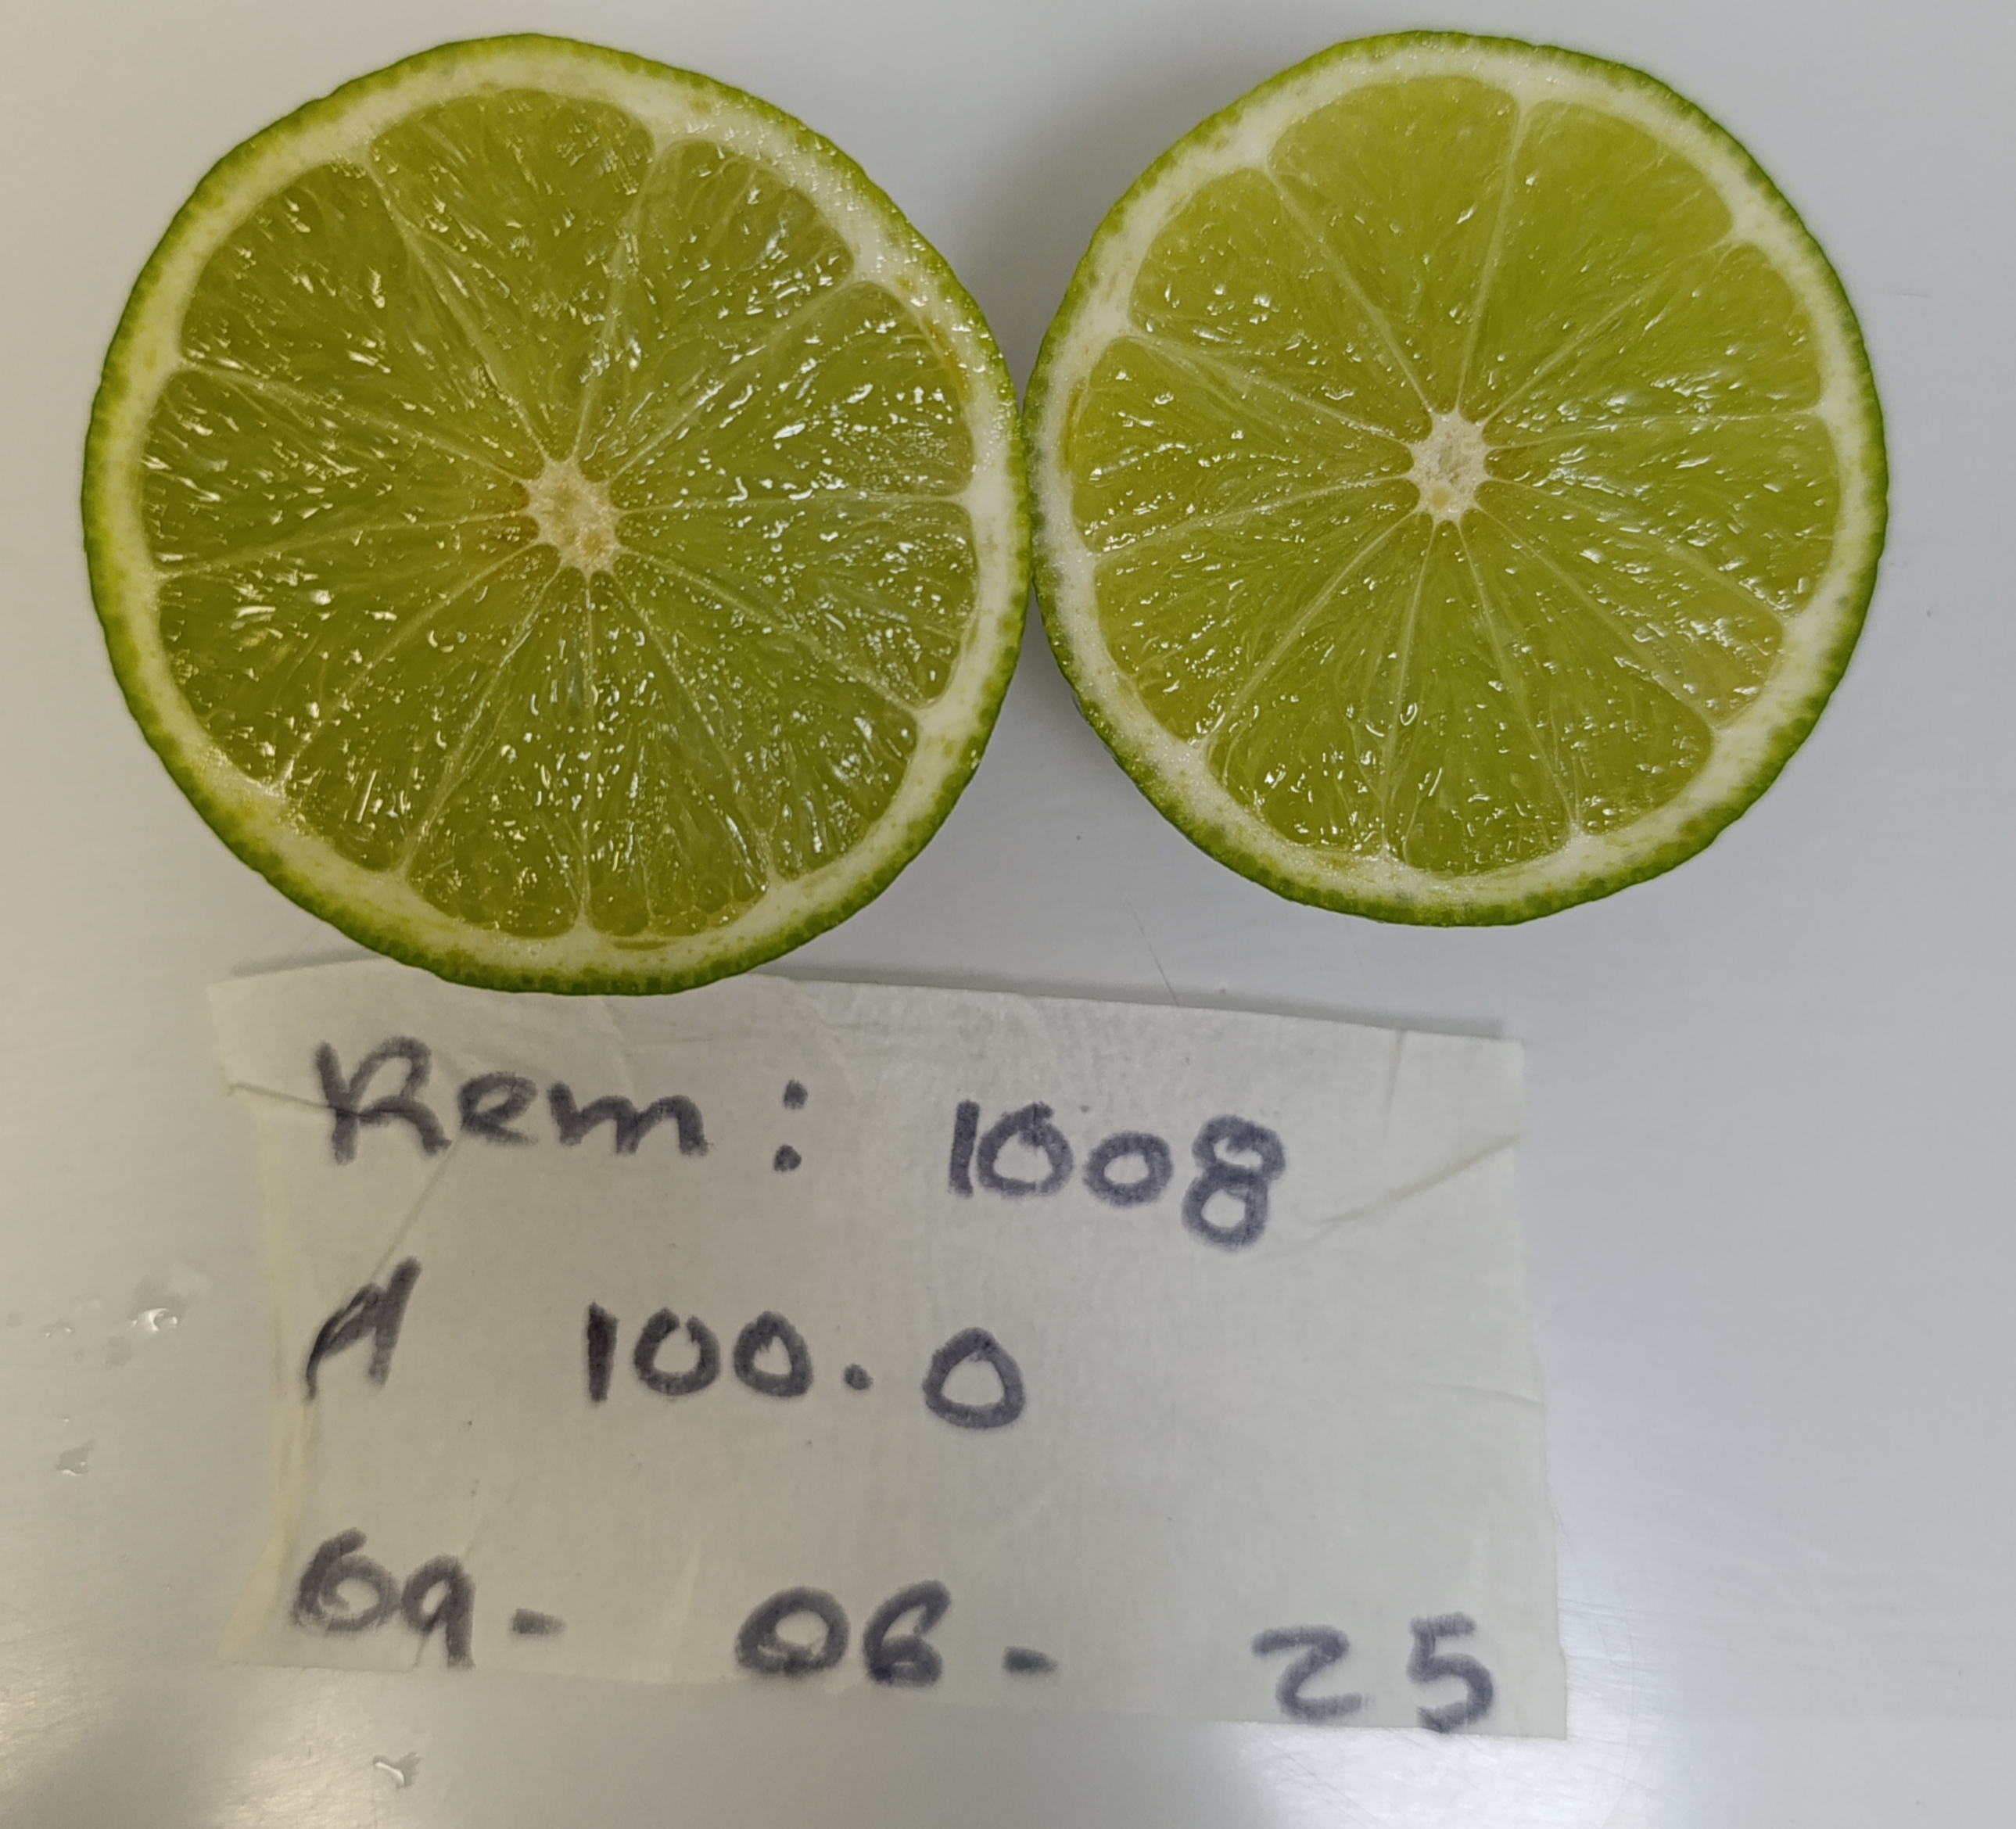 Rem: 1008
A 100.0
09- 06- 25